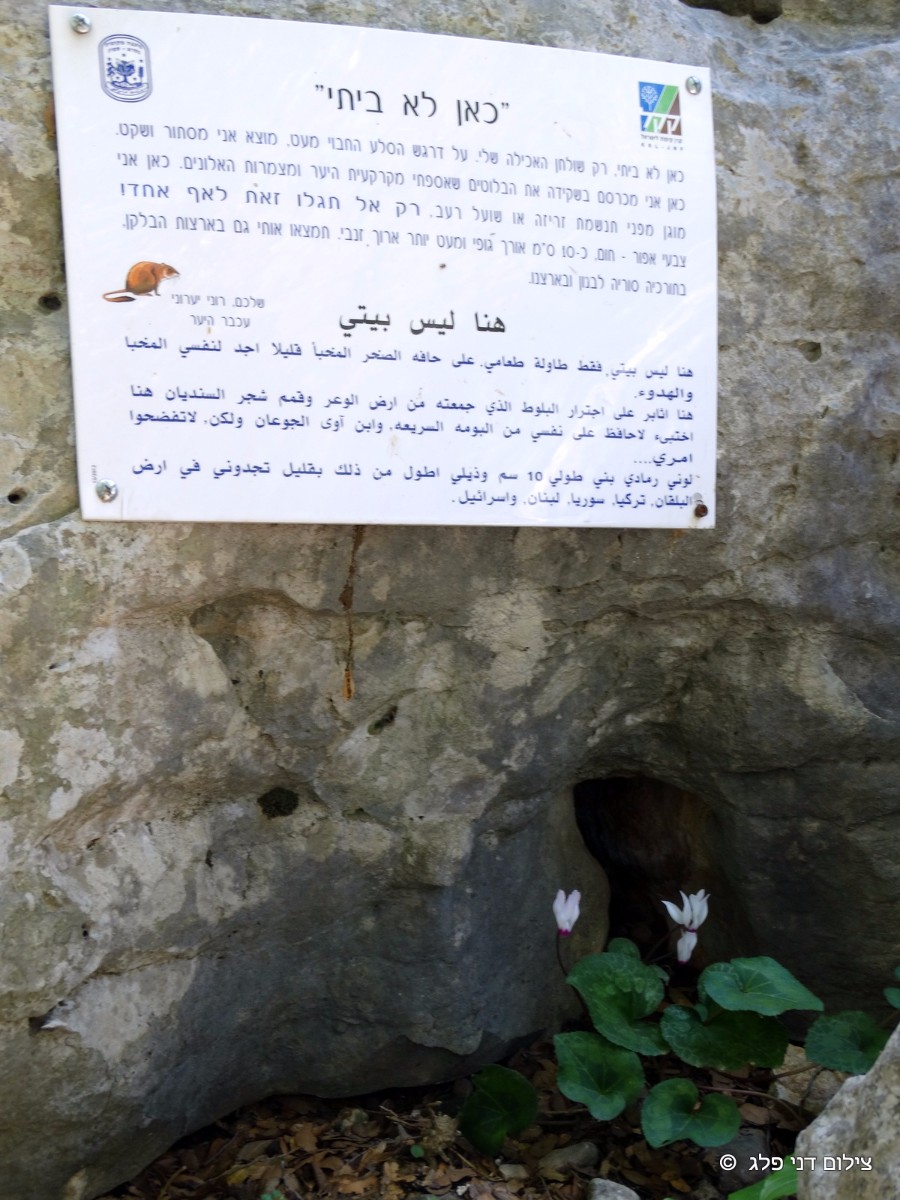 "כאן לא ביתי"
כאן לא ביתי, רק שולחן האכילה שלי. על דרגש הסלע החבוי מעט, מוצא אני מסתור ושקט.
כאן אני מכרסם בשקידה את הבלוטים שאספתי מקרקעית היער ומצמרות האלונים. כאן אני
מוגן מפני תנשמת זריזה או שועל רעב, רק אל תגלו זאת לאף אחד!
צבעי אפור - חום, כ-10 ס"מ אורך גופי ומעט יותר ארוך זנבי. תמצאו אותי גם בארצות הבלקן,
בתורכיה סוריה לבנון ובארצנו.
שלכם, רוני יערוני
עכבר היער
هنا ليس بيتي
هنا ليس بيتي, فقط طاولة طعامي. على حافه الصخر المخبأ قليلا اجد لنفسي المخبا
والهدوء.
هنا اثابر على اجترار البلوط الذي جمعته من ارض الوعر وقمم شجر السنديان هنا
اختبىء لاحافظ على نفسي من البومه السريعه, وابن آوى الجوعان ولكن, لاتفضحوا
امري....
لوني رمادي بني طولي 10 سم وذيلي اطول من ذلك بقليل تجدوني في ارض
البلقان, تركيا, سوريا, لبنان, واسرائيل.
© צילום דני פלג